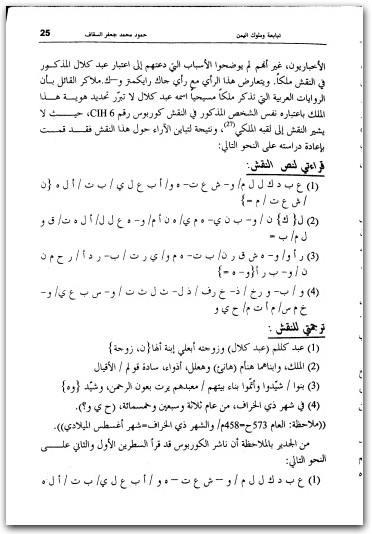 تبابعة وملوك اليمن حمود محمد جعفر السقاف 25
الأخباريون، غير أنهم لم يوضحوا الأسباب التي دعتهم إلى اعتبار عبد كلال المذكور
في النقش ملكاً. ويتعارض هذا الرأي مع رأي جاك رايكمنز و-ك.ملاكر القائل بأن
الروايات العربية التي تذكر ملكاً مسيحياً اسمه عبد كلال لا تبرّر تحديد هوية هذا
الملك باعتباره نفس الشخص المذكور في النقش كوربوس رقم CIH 6، حيث لا
يشير النقش إلى لقبه الملكي(27)، ونتيجة لتباين الآراء حول هذا النقش فقد قمت
بإعادة دراسته على النحو التالي:
قراءتي لنص النقش:
(1) ع ب د ك ل ل م / و – ش ع ت – ه و / أ ب ع ل ي / ب ت / أ ل ه {ن
/ ش ع ت / م =}
(2) ل{ ك} ن / و – ب ن ي – ه م ي / ه ن أ م / و – ه ع ل ل / أ ل ه ت / ق و
ل م / ب =
(3) ر أ و / و – ه ش ق ر ن / ب ت – ه م و / ي ر ت / ب – ر د أ / ر ح م ن
ن / و – ب ر أ {و – ه =}
(4) و / ب – و ر خ / ذ – خ ر ف / ذ ل – ث ل ث ت / و – س ب ع ي / و –
خ م س / م أ ت م / ح ي و
ترجمتي للنقش :
(1) عبد كللم (عبد كلال) وزوجته أبعلي إبنة ألها{ن، زوجة}
(2) الملك، وابناهما هنأم (هانئ) وهعلل، أذواء، سادة قولم / الأقيال
(3) بنوا / شيّدوا وأتموا بناء بيتهم / معبدهم يرت بعون الرحمن، وشيّد {وه}
(4) في شهر ذي الخراف، من عام ثلاثة وسبعين وخمسمائة، (ح ي و؟).
((ملاحظة: العام 573ح=458م/ والشهر ذي الخراف=شهر أغسطس الميلادي)).
من الجدير بالملاحظة أن ناشر الكوربوس قد قرأ السطرين الأول والثاني على
النحو التالي:
(1) ع ب د ك ل ل م / و – ش ع ت – ه و / أ ب ع ل ي / ب ت / أ ل ه